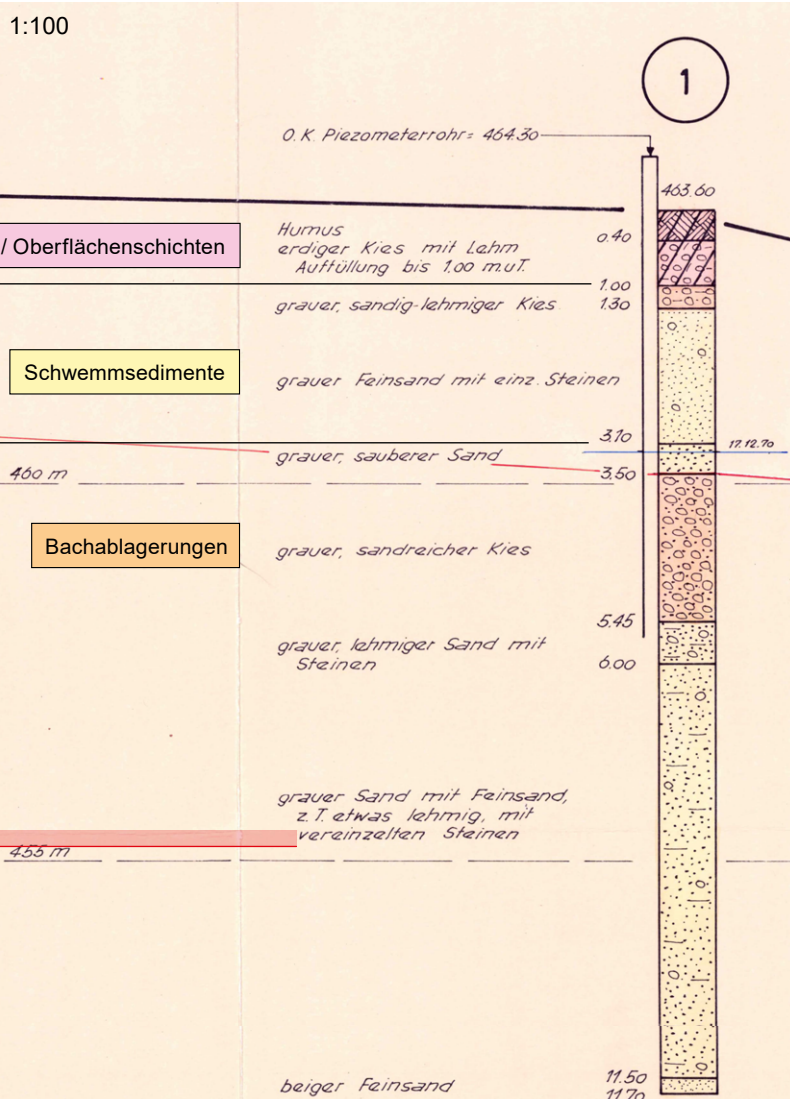 1:100
1
O.K. Piezometerrohr= 464.30
463.60
Humus
0.40
/ Oberflächenschichten
erdiger Kies mit Lehm
Auffüllung bis 1.00 m.u.T.
1.00
grauer, sandig-lehmiger Kies
1.30
Schwemmsedimente
grauer Feinsand mit einz. Steinen
3.10
17.12.70
grauer, sauberer Sand
460 m
3.50
Bachablagerungen
grauer, sandreicher Kies
5.45
grauer, lehmiger Sand mit
Steinen
6.00
grauer Sand mit Feinsand,
z.T. etwas lehmig, mit
vereinzelten Steinen
455 m
beiger Feinsand
11.50
11.70